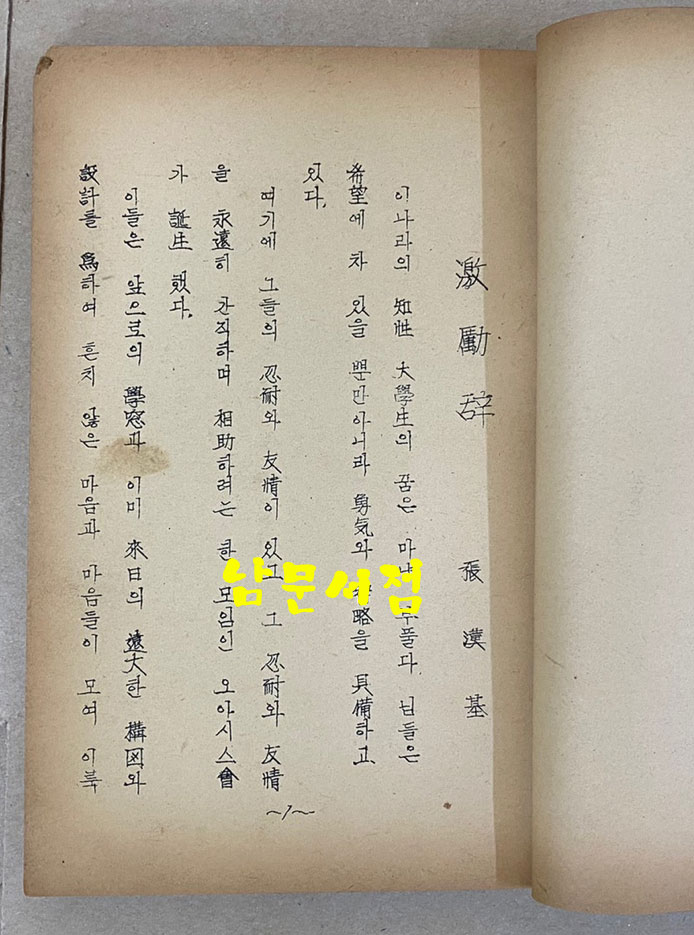 激勵辞
張漢基
이나라의 知性 大學生의 꿈은 마냥 부풀다 님들은
希望에 차 있을 뿐만아니라 勇気와 略을 具備하고
있다.
여기에 그들의 忍耐와 友情이 있고 그 忍耐와 友情
을 永遠히 간직하며 相助하려는 한 모임인 오아시스會
가 誕生했다.
이들은 앞으로의 學窓과 이미 來日의 遠大한 構図와
設計를 爲하여 흔치 않은 마음과 마음들이 모여 이룩
~1~
남문서점